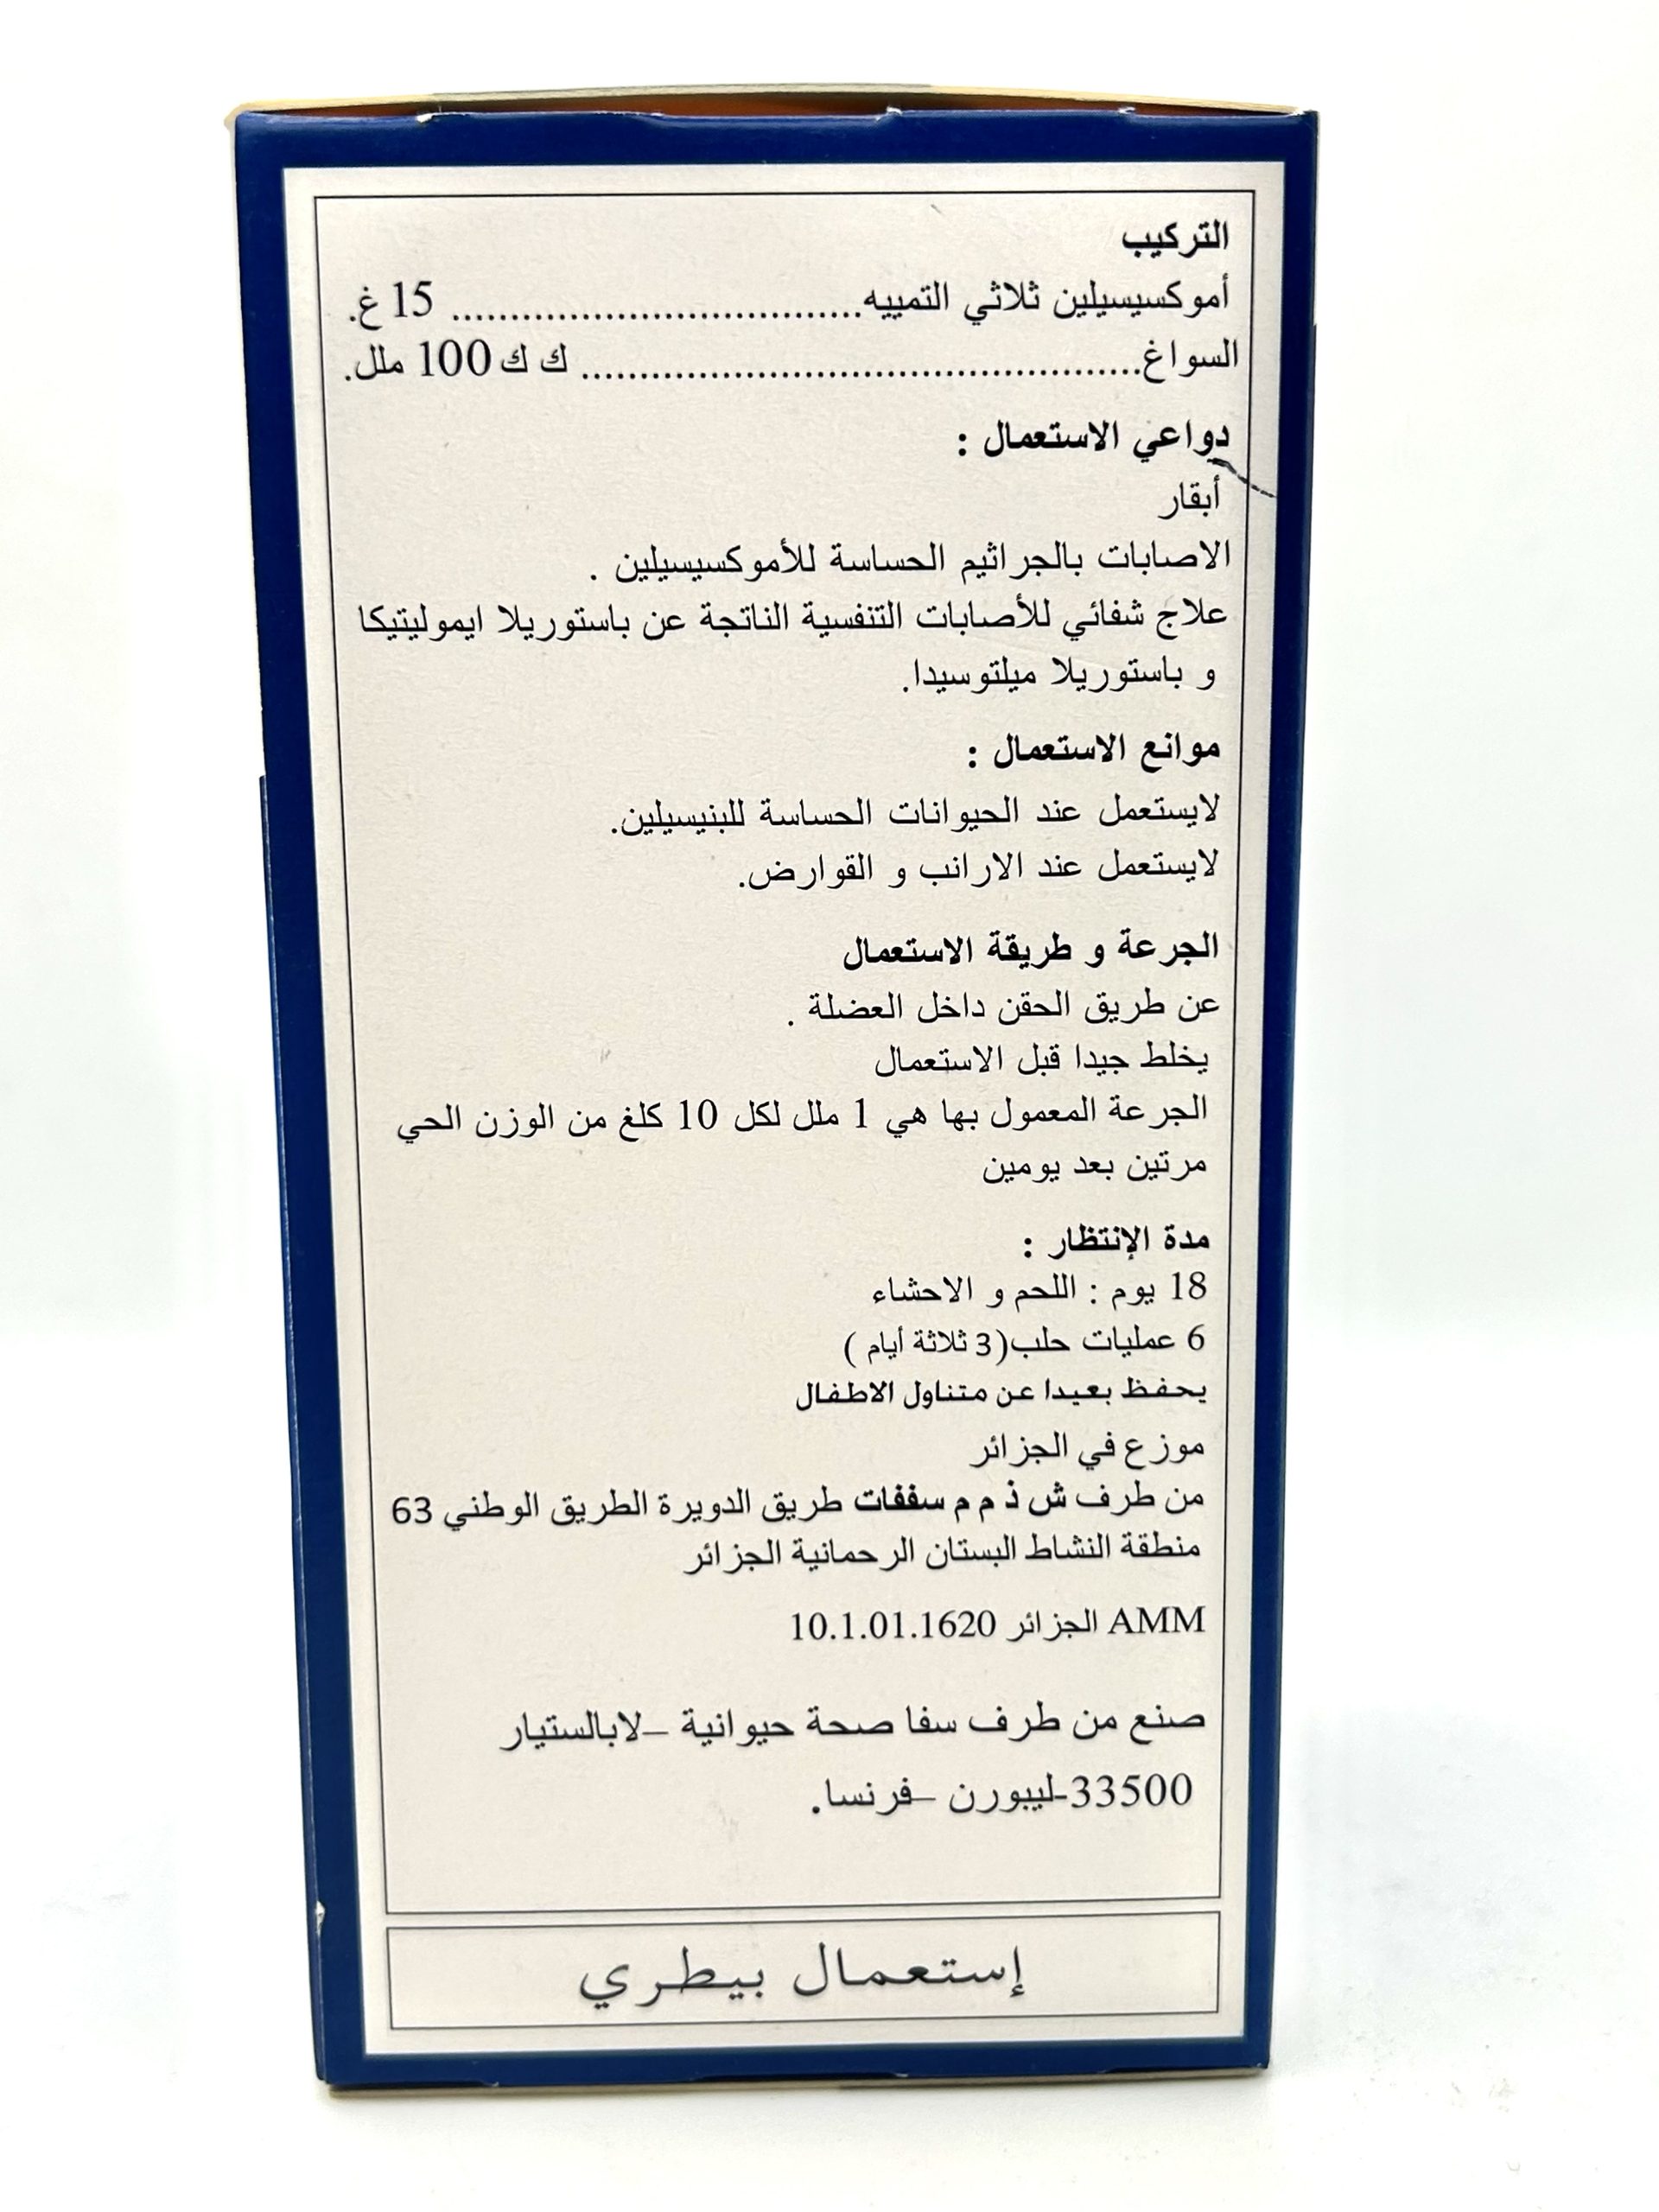 التركيب
أموكسيسيلين ثلاثي التمييه.................................. 15 غ.
السواغ............................................... ك ك 100 ملل.
دواعي الاستعمال :
أبقار
الاصابات بالجراثيم الحساسة للأموكسيسيلين .
علاج شفائي للأصابات التنفسية الناتجة عن باستوريلا ايموليتيكا
و باستوريلا ميلتوسيدا.
موانع الاستعمال :
لايستعمل عند الحيوانات الحساسة للبنيسيلين.
لايستعمل عند الارانب و القوارض.
الجرعة و طريقة الاستعمال
عن طريق الحقن داخل العضلة .
يخلط جيدا قبل الاستعمال
الجرعة المعمول بها هي 1 ملل لكل 10 كلغ من الوزن الحي
مرتين بعد يومين
مدة الإنتظار :
18 يوم : اللحم و الاحشاء
6 عمليات حلب(3 ثلاثة أيام )
يحفظ بعيدا عن متناول الاطفال
موزع في الجزائر
من طرف ش ذ م م سففات طريق الدويرة الطريق الوطني 63
منطقة النشاط البستان الرحمانية الجزائر
AMM الجزائر 10.1.01.1620
صنع من طرف سفا صحة حيوانية –لابالستيار
33500-ليبورن –فرنسا.
إستعمال بيطري